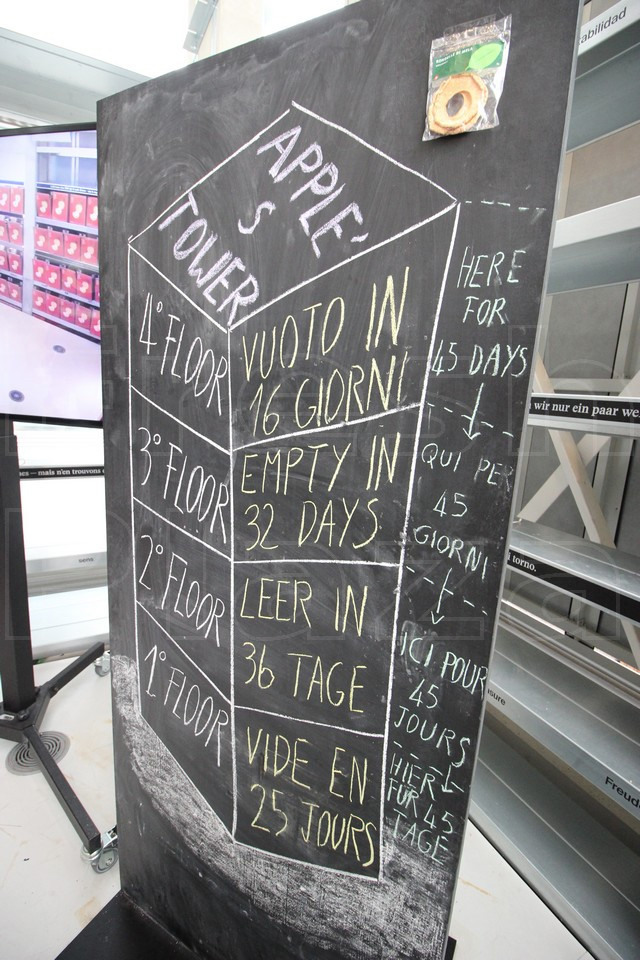 APPLE'
S
TOWER
4° FLOOR
VUOTO IN
16 GIORNI
HERE
FOR
45 DAYS
3° FLOOR
EMPTY IN
32 DAYS
QUI PER
45
GIORNI
2° FLOOR
LEER IN
36 TAGE
ICI POUR
45
JOURS
1° FLOOR
VIDE EN
25 JOURS
HIER
FUR 45
TAGE
abilidad
wir nur ein paar we
– mais n'en trouvons
torno.
sure
Freud